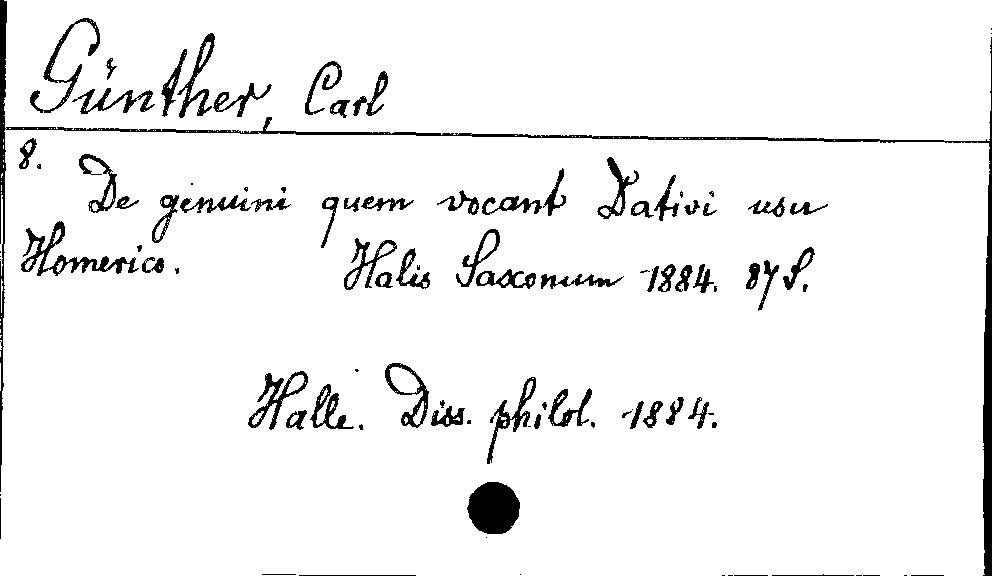 Günther, Carl
8.
De genuini quem vocant Dativi usu
Homerico. Halis Saxonum 1884. 87 S.
Halle. Diss. philol. 1884.